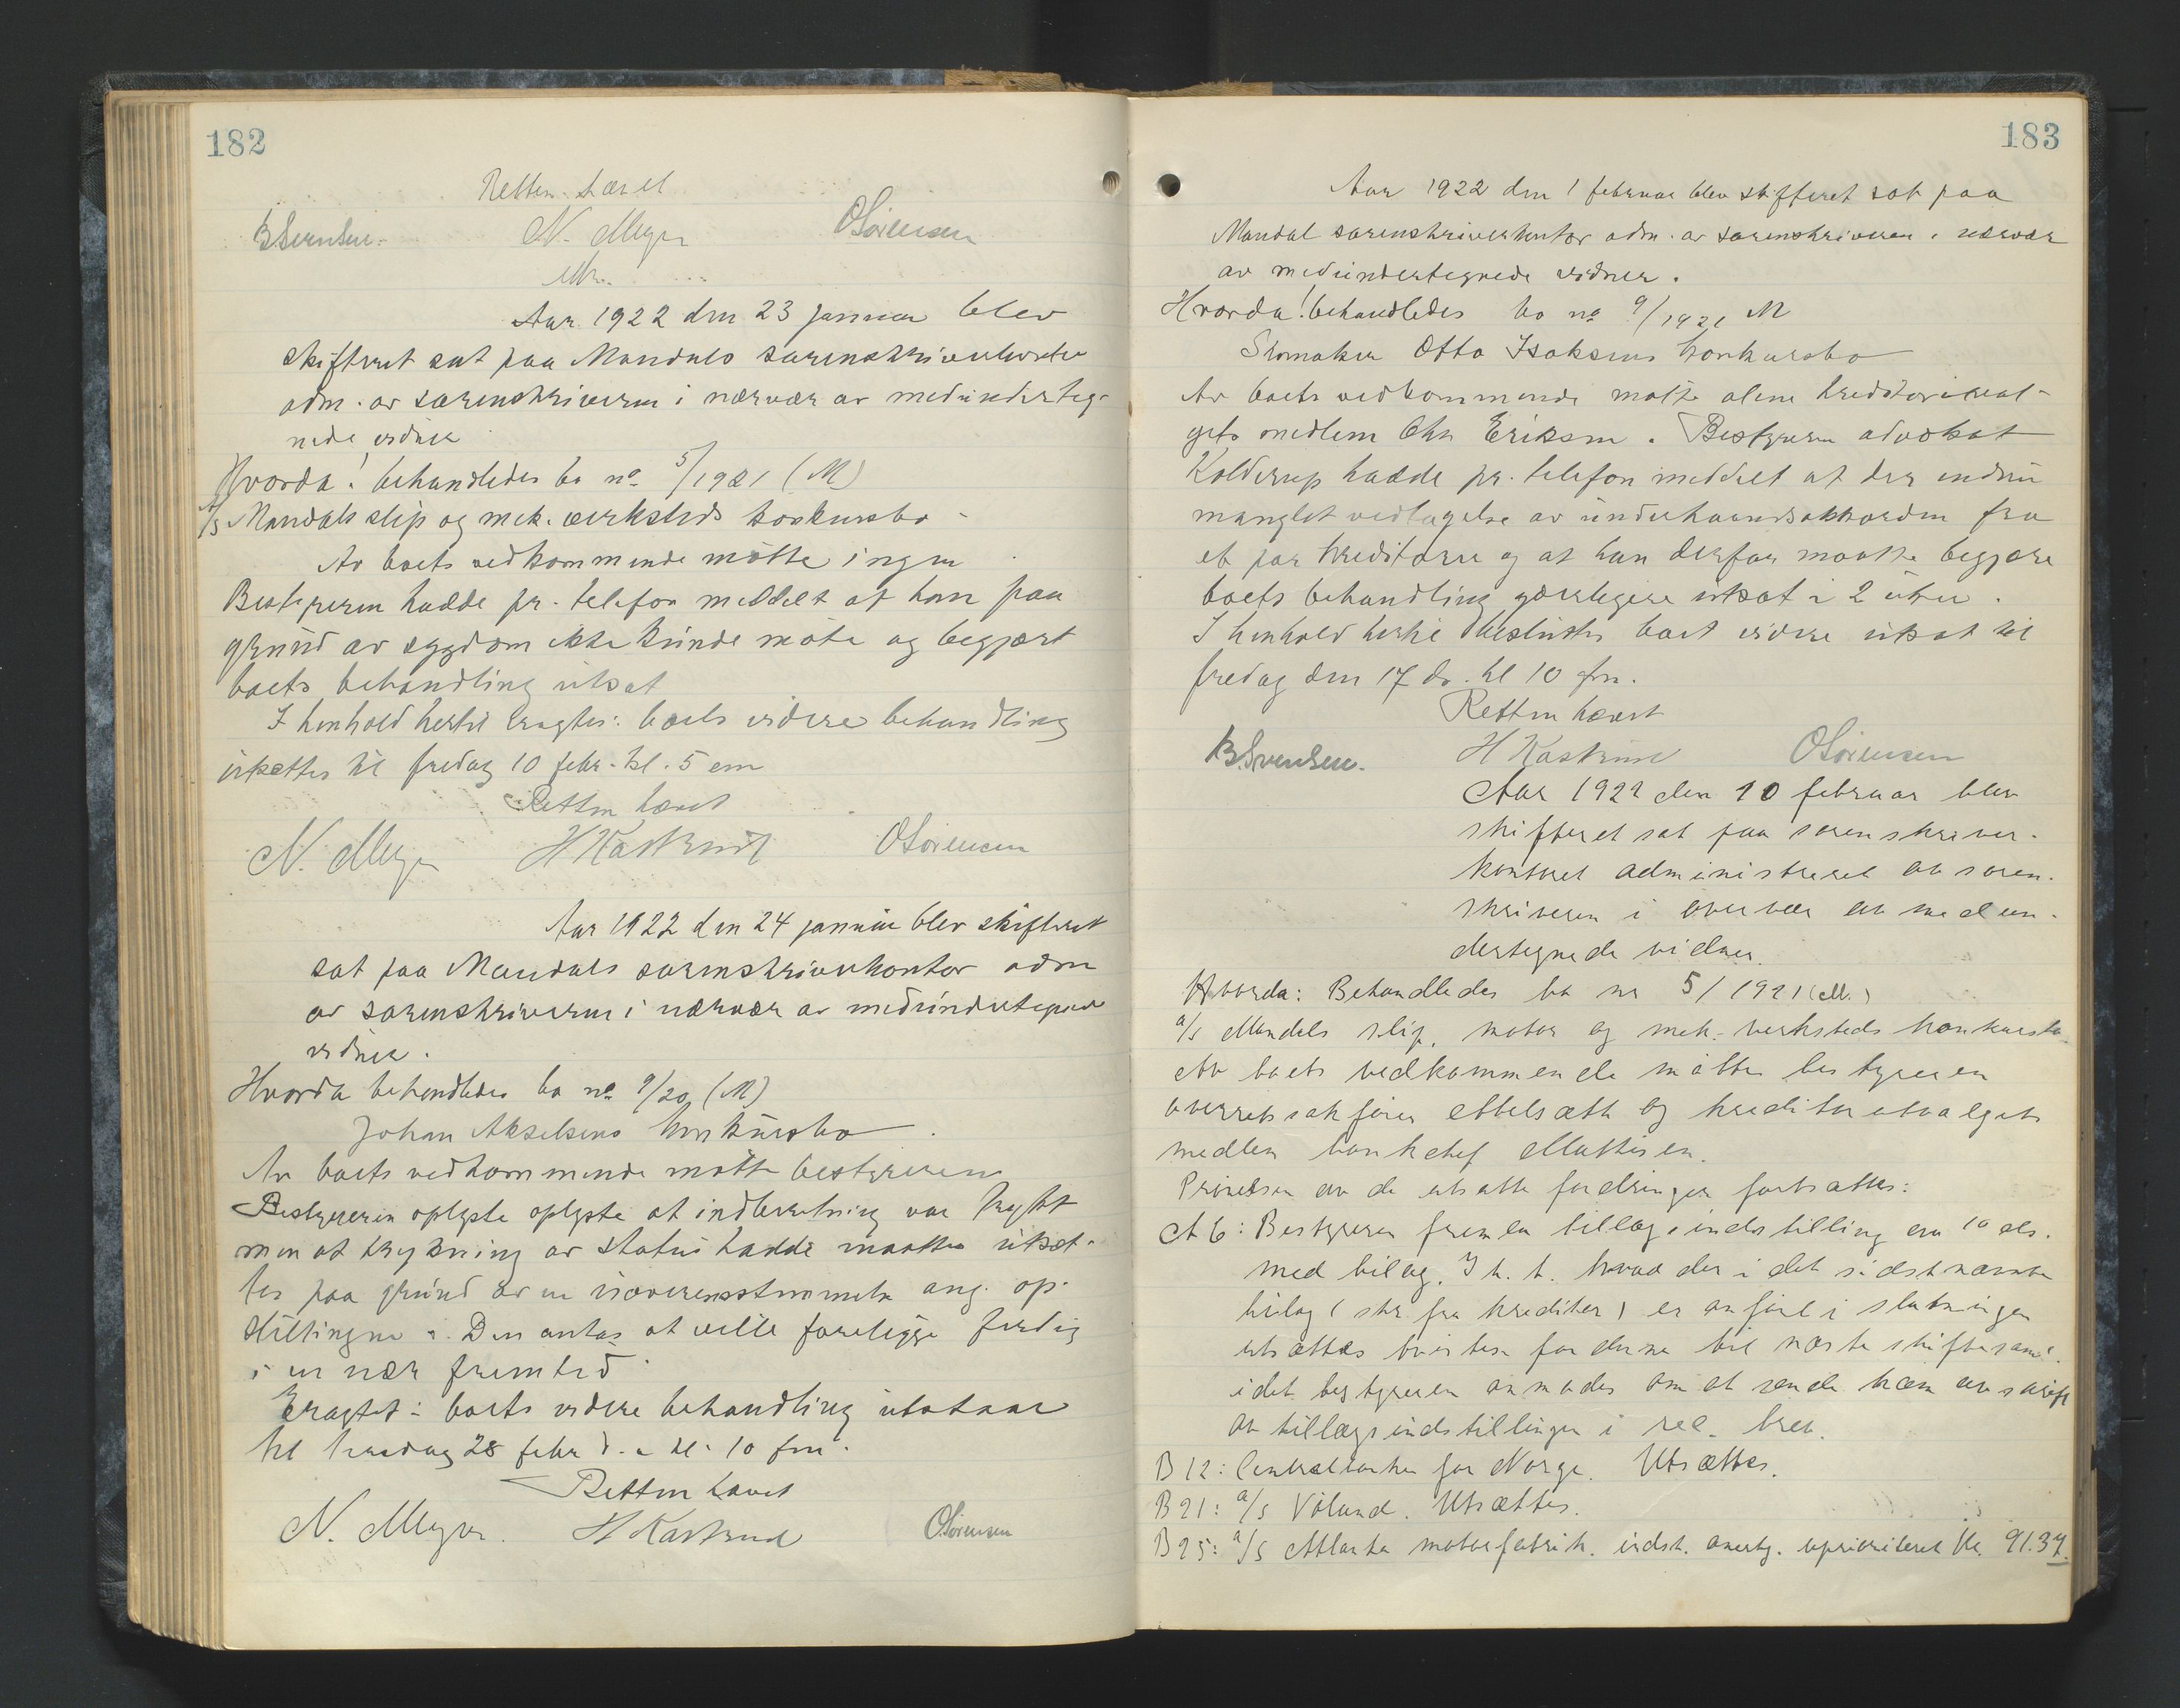 182
Retten hævet
B Svendsen. N. Meyer OSörensen
Aar 1922 den 23 januar blev
skifteret sat paa Mandals sorenskriverkontor
adm. av sorenskriveren i nærvær av medunderteg-
nede vidner
Hvorda! behandledes bo no 5/1921 (M)
A/S Mandals slip og mek. verksteds konkursbo -
Av boets vedkommende mötte ingen
Bestyreren hadde pr. telefon meddelt at han paa
grund av sygdom ikke kunde möte og begjært
boets behandling utsat
I henhold hertil eragtes: boets videre behandling
utsættes til fredag 10 febr. kl. 5 em
Retten hævet
N. Meyer H Kastrud OSörensen
Aar 1922 den 24 januar blev skifteret
sat paa Mandals sorenskriverkontor adm
av sorenskriveren i nærvær av medundertegnede
vidner.
Hvorda behandledes bo no 9/20 (M)
Johan Akselsens konkursbo.
Av boets vedkommende mötte bestyreren
Bestyreren oplyste oplyste at indberetning var trykt
men at trykning av status hadde maattet utsæt-
tes paa grund av en uoverensstemmelse ang. op-
stillingen. Den antas at ville foreligge ferdig
i en nær fremtid.
Eragtet: boets videre behandling utstaar
til tirsdag 28 febr d. a kl. 10 fm.
Retten hævet
N. Meyer. H Kastrud O.Sörensen
183
Aar 1922 den 1 februar blev skifteret sat paa
Mandal sorenskriverkontor adm. av sorenskriveren i nærvær
av medundertegnede vidner.
Hvorda! behandledes bo no 9/1921 M
Skomaker Otto Isaksens konkursbo
Av boets vedkommende mötte alene kreditorutval-
gets medlem Chr Eriksen. Bestyreren advokat
Kolderup hadde pr. telefon meddelt at der endnu
manglet vedtagelse av underhaandsakkorden fra
et par kreditorer og at han derfor maatte begjære
boets behandling yderligere utsat i 2 uker.
I henhold hertil besluttes boet videre utsat til
fredag den 17 ds. kl 10 fm.
Retten hævet
B.Svendsen. H Kastrud OSörensen
Aar 1922 den 10 februar blev
skifteret sat paa sorenskriver-
kontoret administreret av soren-
skriveren i overvær av medun-
dertegnede vidner.
Hvorda: Behandledes bo nr 5/1921 (M.)
a/s Mandals slip, motor og mek. verksteds konkursbo.
Av boets vedkommende mötte bestyreren
overretssakförer Ettelsæth og kreditorutvalgets
medlem bankchef Mathisen.
Prövelsen av de utsatte fordringer fortsattes:
A 6: Bestyreren fremla tillægsindstilling av 10 ds.
med bilag. I h. t. hvad der i det sidstnævnte
bilag (skr. fra krediter) er anfört i slutningen
utsættes tvisten for denne til næste skiftesaml.
idet bestyreren anmodes om at sende ham avskrift
av tillægsindstillingen i rec. brev.
B 12: Centralbanken for Norge. Utsættes.
B 21: a/s Völund. Utsættes.
B 25: a/s Atlanta motorfabrik. indst. anerkj. uprioriteret Kr. 91.37.